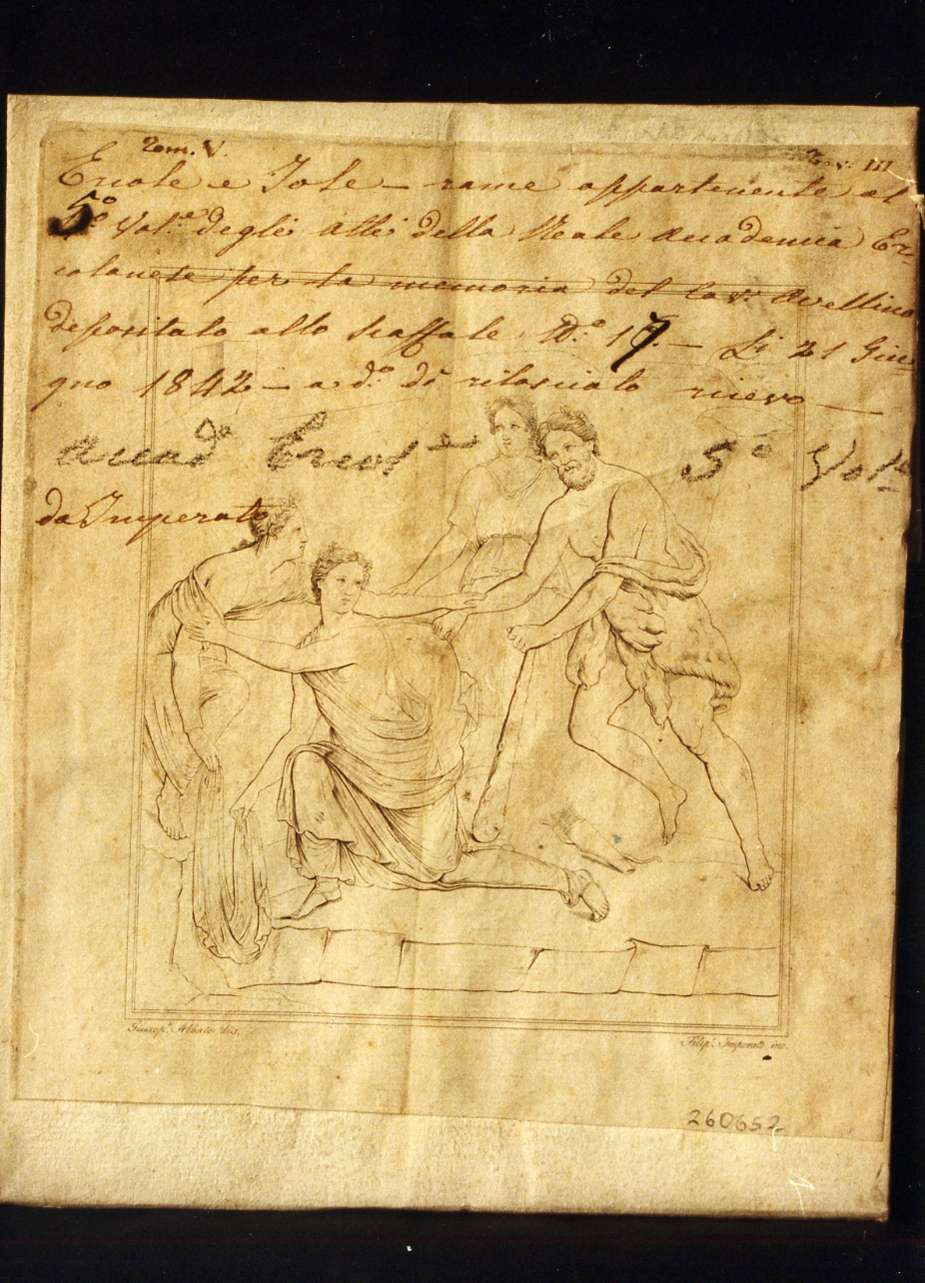 Tom. V. Tav. III
Ercole e Jole — rame appartenente al
5º Vol.e degli Atti della Reale Accademia Er-
colanese per la memoria del Cav. Avellino
depositato allo scaffale N.º 17. — Li 21 Giu-
gno 1842 — a d.º dì rilasciato ricevo —
Accad.a Ercol.se 5º Vol.e
da Imperato
Giusep.e Abbate dis.
Filip.o Imperato inc.
260652